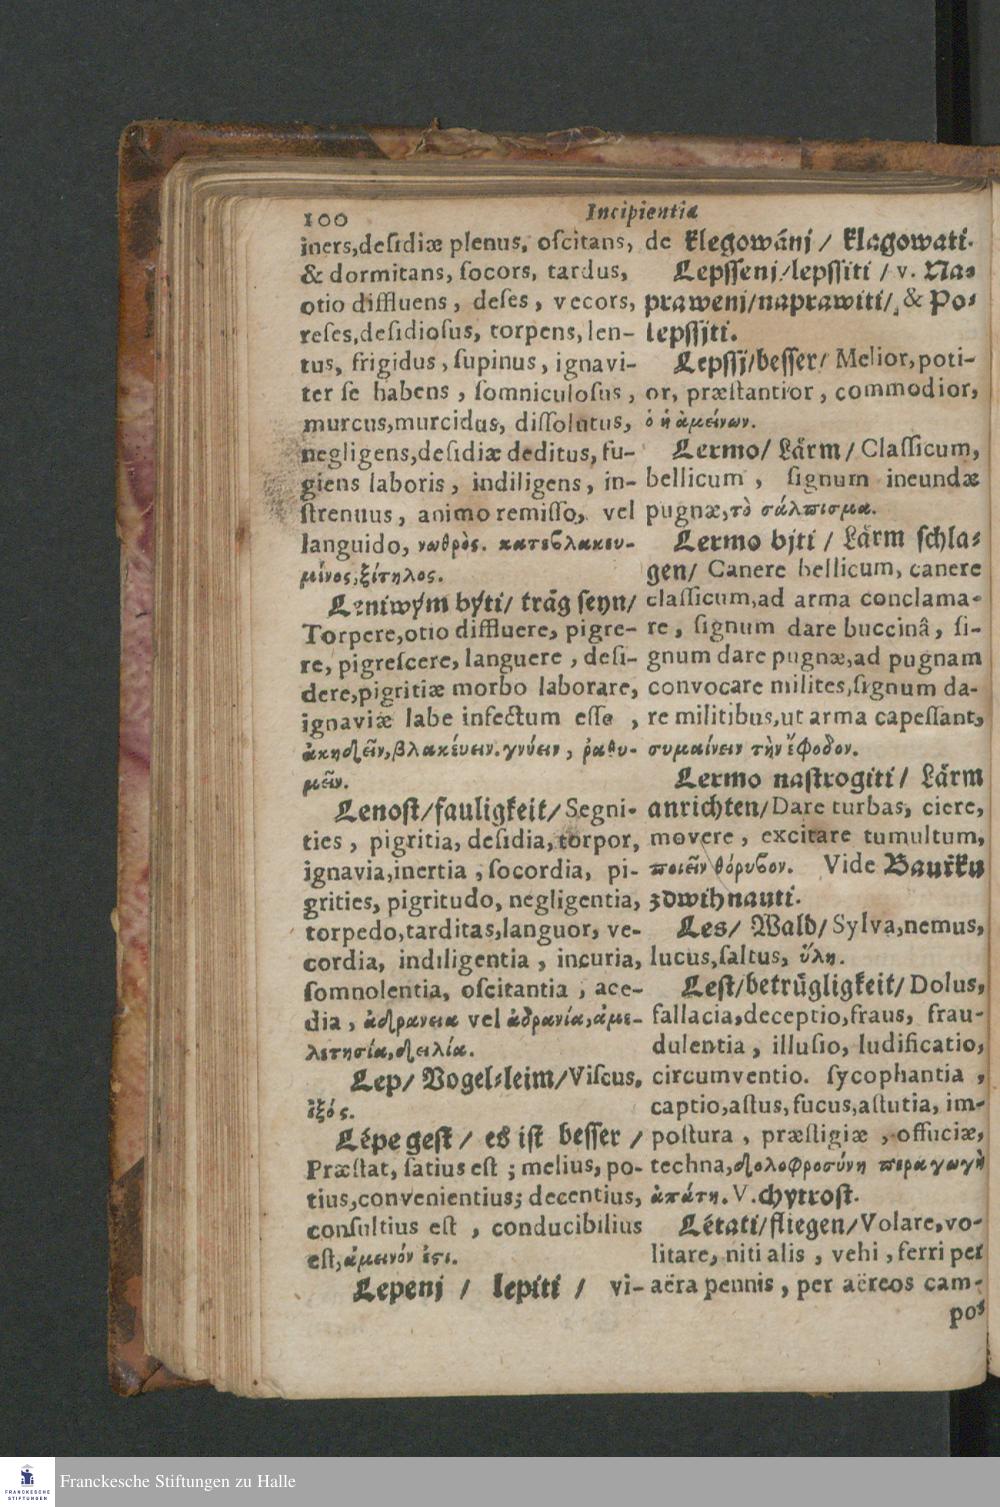 100
Incipientia
iners,desidiæ plenus, oscitans,
& dormitans, socors, tardus,
otio diffluens, deses, vecors,
reses,desidiosus, torpens, len-
tus, frigidus, supinus, ignavi-
ter se habens, somniculosus,
murcus,murcidus, dissolutus,
negligens,desidiæ deditus, fu-
giens laboris, indiligens, in-
strenuus, animo remisso, vel
languido, νωθρὸς. κατεβλακευ-
μένος,ἐξίτηλος.
Leniwým býti/ träg seyn/
Torpere,otio diffluere, pigre-
re, pigrescere, languere, desi-
dere,pigritiæ morbo laborare,
ignaviæ labe infectum esse,
ἀκηδεῖν,βλακέυειν.γνύειν, ῥαθυ-
μεῖν.
Lenost/fauligkeit/Segni-
ties, pigritia, desidia, torpor,
ignavia,inertia, socordia, pi-
grities, pigritudo, negligentia,
torpedo,tarditas,languor, ve-
cordia, indiligentia, incuria,
somnolentia, oscitantia, ace-
dia, ἀδράνεια vel ἀδρανία,ἀμε-
λετησία,δειλία.
Lep/ Vogel-leim/Viscus,
ἰξός.
Lépe gest/ es ist besser/
Præstat, satius est; melius, po-
tius,convenientius; decentius,
consultius est, conducibilius
est,ἀμεινόν ἐστι.
Lepenj / lepiti / vi-
de klegowánj/ klagowati.
Lepssenj/lepssiti / v. Na-
prawenj/naprawiti/, & Po-
lepssjti.
Lepssj/besser/ Melior,poti-
or, præstantior, commodior,
ὁ ἡ ἀμείνων.
Lermo/ Lärm/ Classicum,
bellicum, signum ineundæ
pugnæ,τὸ σάλπισμα.
Lermo bjti / Lärm schla-
gen/ Canere bellicum, canere
classicum,ad arma conclama-
re, signum dare buccinâ, si-
gnum dare pugnæ,ad pugnam
convocare milites,signum da-
re militibus,ut arma capessant,
συμαίνειν τὴν ἔφοδον.
Lermo nastrogiti/ Lärm
anrichten/Dare turbas, ciere,
movere, excitare tumultum,
ποιεῖν θόρυβον. Vide Bauřku
zdwihnauti.
Les/ Wald/Sylva,nemus,
lucus,saltus, ὕλη.
Lest/betrügligkeit/Dolus,
fallacia,deceptio,fraus, frau-
dulentia, illusio, ludificatio,
circumventio. sycophantia,
captio,astus,fucus,astutia, im-
postura, præstigiæ, offuciæ,
techna,δολοφροσύνη παραγωγὴ
ἀπάτη. V.chytrost.
Létati/fliegen/Volare,vo-
litare, niti alis, vehi, ferri per
aëra pennis, per aëreos cam-
pos
Franckesche Stiftungen zu Halle
FRANCKESCHE
STIFTUNGEN